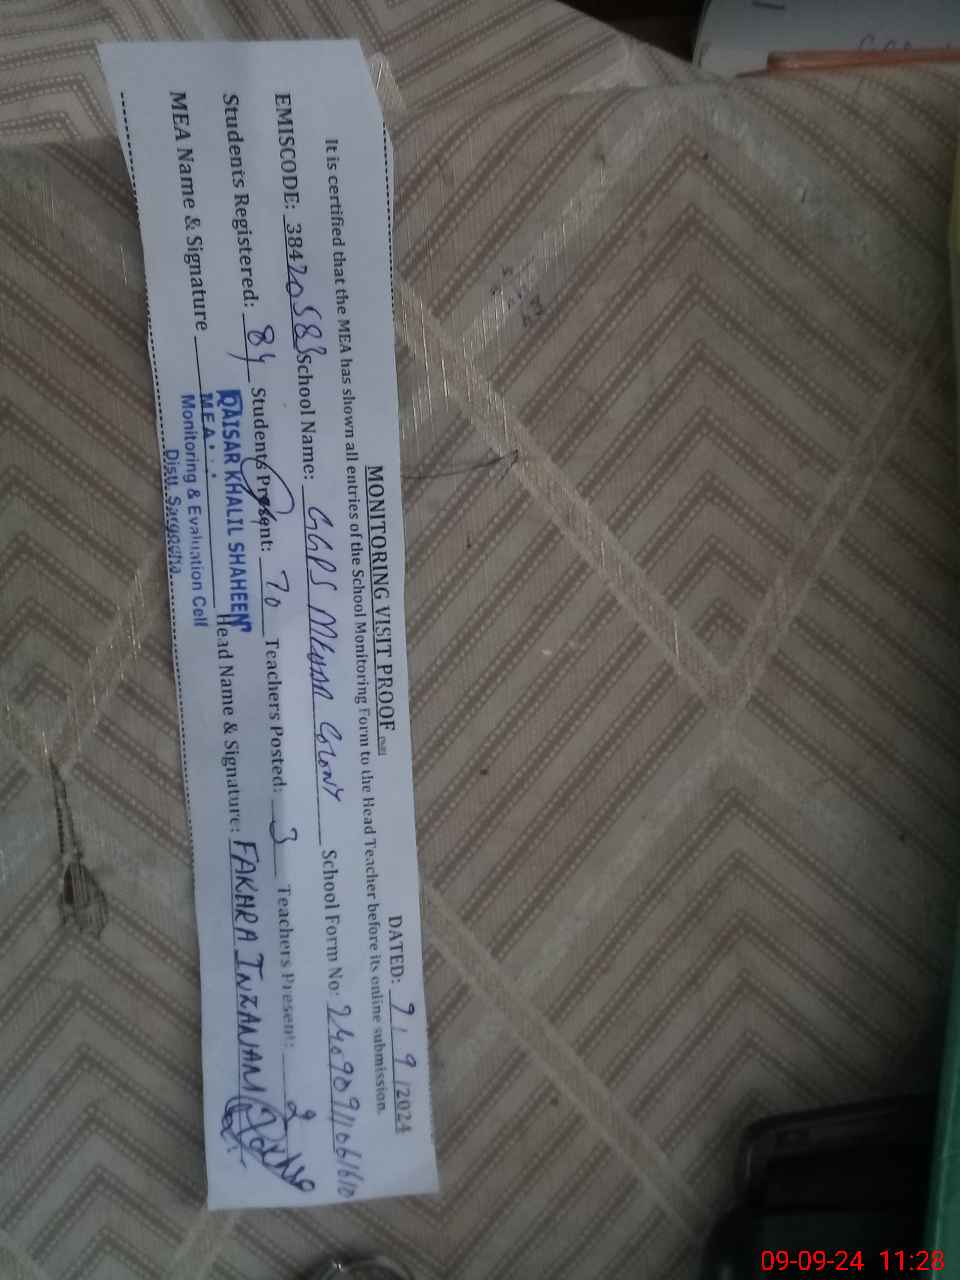 MONITORING VISIT PROOF
DATED: 9 / 9 /2024
It is certified that the MEA has shown all entries of the School Monitoring Form to the Head Teacher before its online submission.
EMISCODE: 38420583 School Name: GGPS COLONY School Form No:
Students Registered: 84 Students Present: 70 Teachers Posted: 3 Teachers Present: 2
MEA Name & Signature Head Name & Signature: FAKHRA INZAMAM
QAISAR KHALIL SHAHEEN
MEA
Monitoring & Evaluation Cell
Distt. Sargodha
09-09-24 11:28